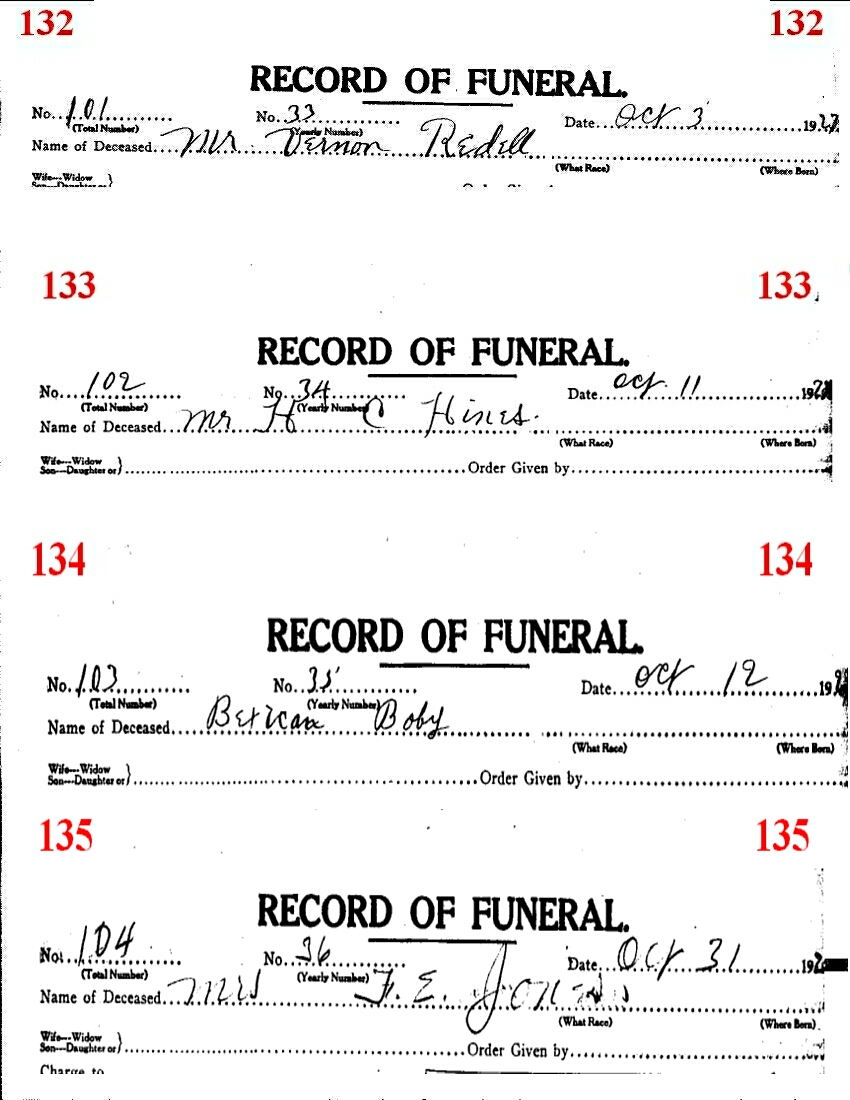 132 132
RECORD OF FUNERAL.
No. 101 No. 33 Date Oct 3 1927
(Total Number) (Yearly Number)
Name of Deceased Mr Vernon Redell
(What Race) (Where Born)
Wife---Widow
Son---Daughter or}
133 133
RECORD OF FUNERAL.
No. 102 No. 34 Date Oct. 11 192
(Total Number) (Yearly Number)
Name of Deceased Mr H C Hines.
(What Race) (Where Born)
Wife---Widow
Son---Daughter or} Order Given by
134 134
RECORD OF FUNERAL.
No. 103 No. 35 Date Oct 12 19
(Total Number) (Yearly Number)
Name of Deceased Boby
(What Race) (Where Born)
Wife---Widow
Son---Daughter or} Order Given by
135 135
RECORD OF FUNERAL.
No. 104 No. 36 Date Oct 31 192
(Total Number) (Yearly Number)
Name of Deceased Mrs F. E. Jones
(What Race) (Where Born)
Wife---Widow
Son---Daughter or} Order Given by
Charge to